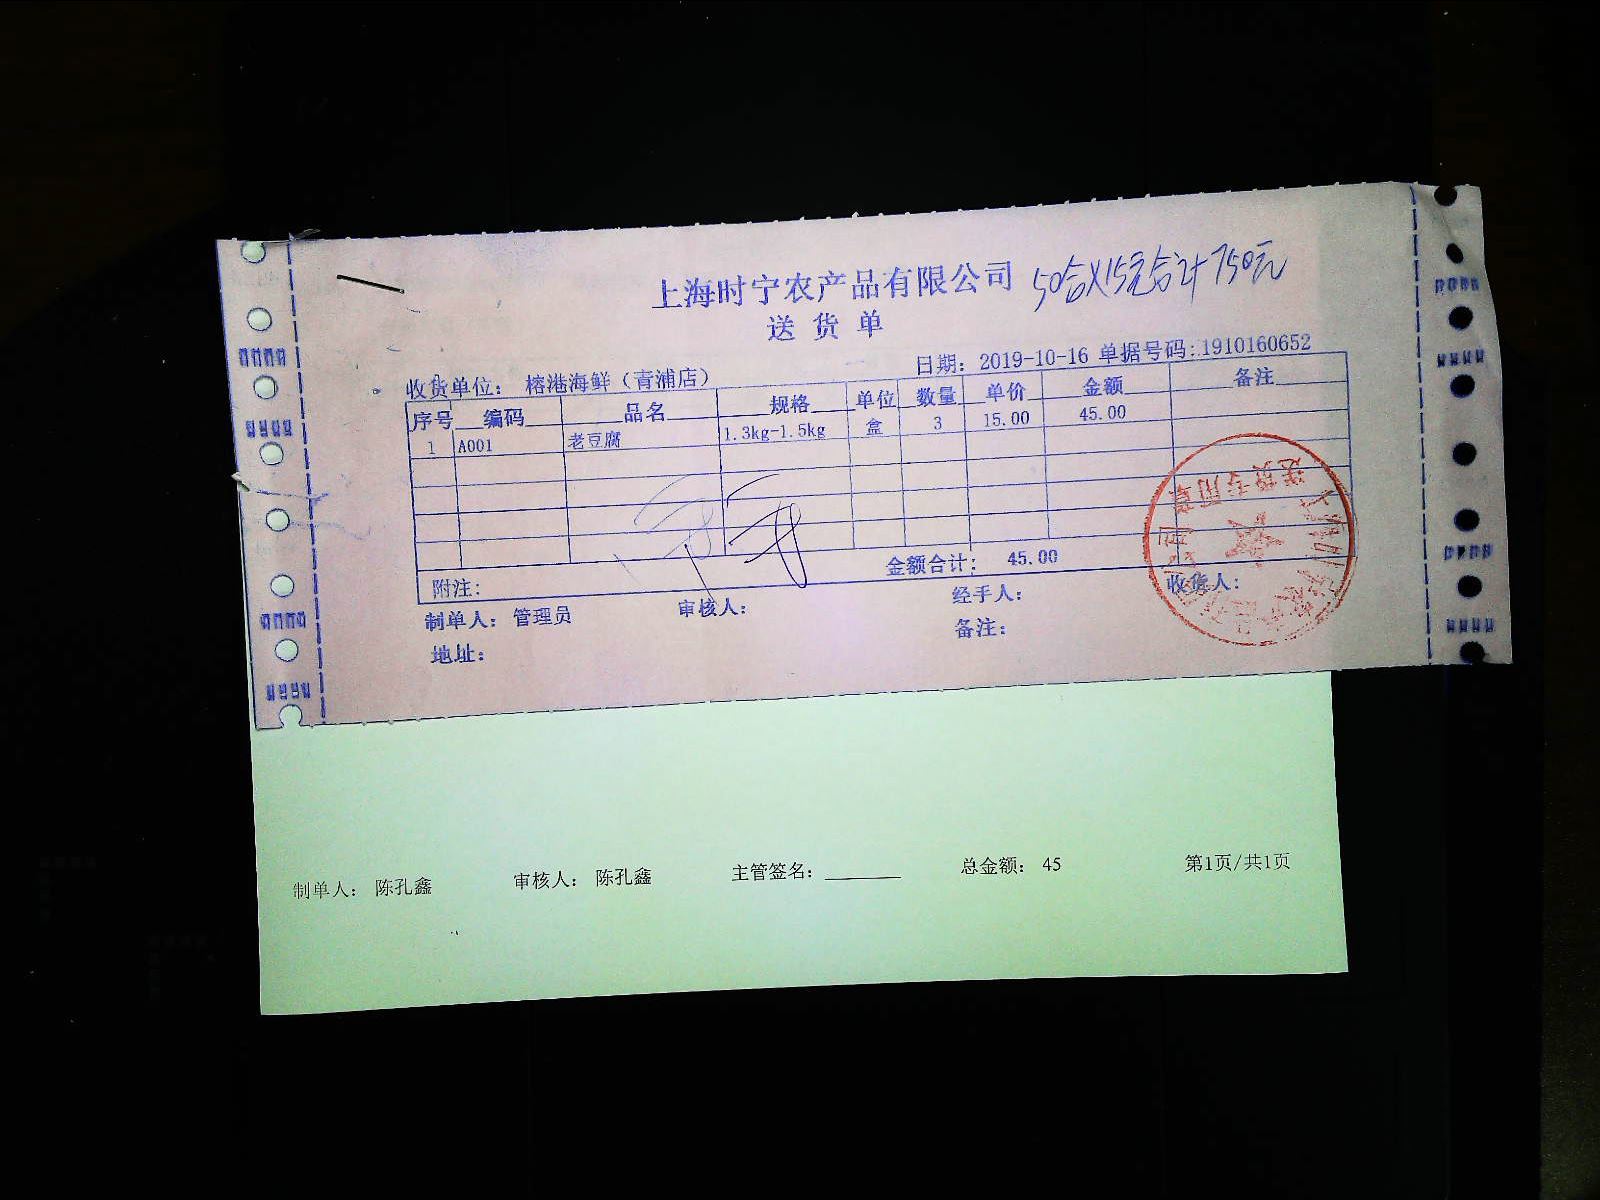 上海时宁农产品有限公司 50合X15元合计750元
送货单
日期: 2019-10-16 单据号码:1910160652
收货单位: 榕港海鲜(青浦店)
序号 编码 品名 规格 单位 数量 单价 金额 备注
1 A001 老豆腐 1.3kg-1.5kg 盒 3 15.00 45.00
金额合计: 45.00
附注:
制单人: 管理员 审核人: 经手人: 收货人:
地址: 备注:
送货专用章
制单人: 陈孔鑫 审核人: 陈孔鑫 主管签名: 总金额: 45 第1页/共1页